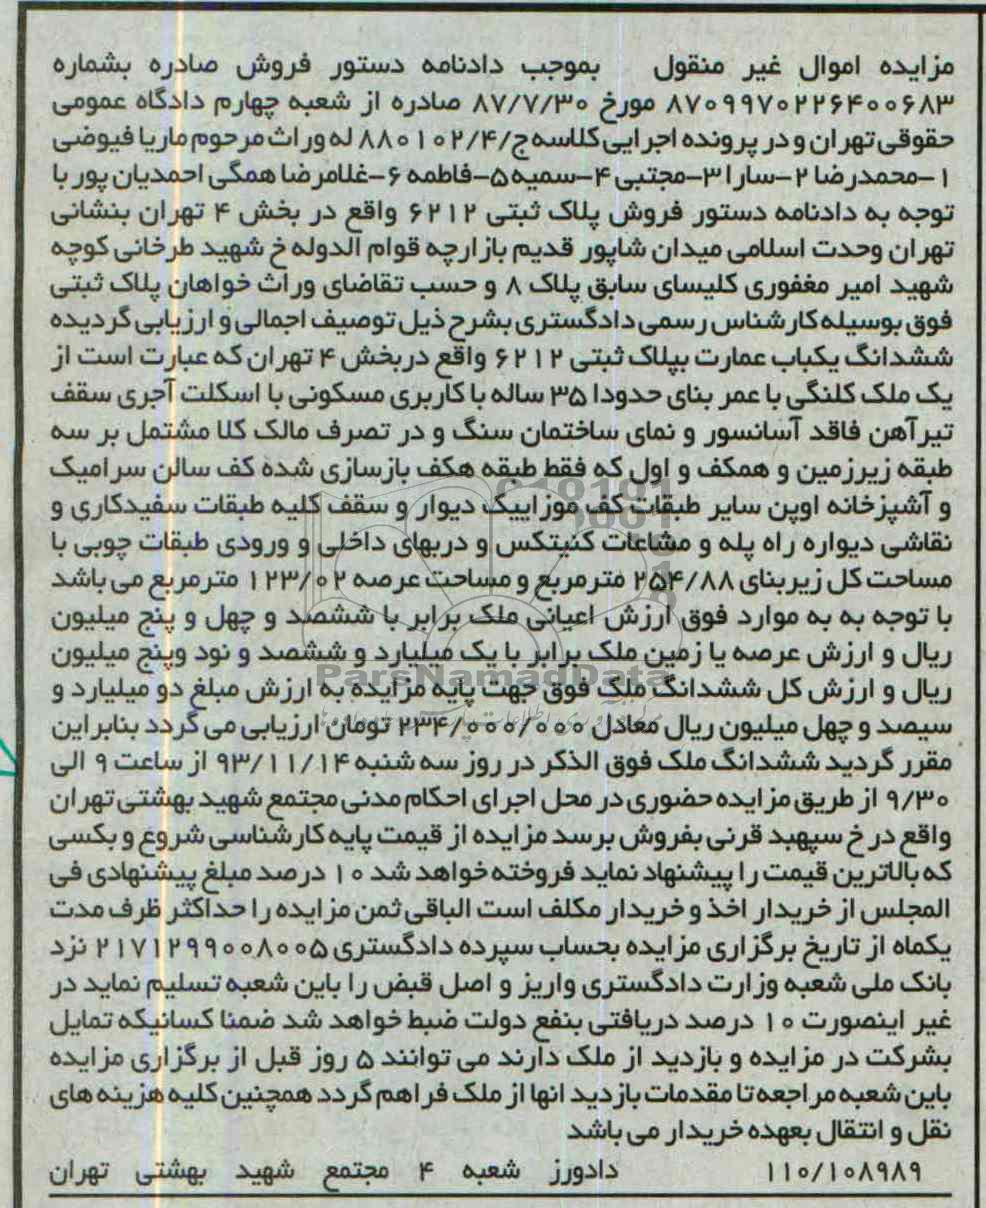 مزایده اموال غیر منقول    بموجب دادنامه دستور فروش صادره بشماره
۸۷۰۹۹۷۰۲۲۶۴۰۰۶۸۳ مورخ ۸۷/۷/۳۰ صادره از شعبه چهارم دادگاه عمومی
حقوقی تهران و در پرونده اجرایی کلاسه ج/۸۸۰۱۰۲/۴ له وراث مرحوم ماریا فیوضی
۱-محمدرضا ۲-سارا ۳-مجتبی ۴-سمیه ۵-فاطمه ۶-غلامرضا همگی احمدیان پور با
توجه به دادنامه دستور فروش پلاک ثبتی ۶۲۱۲ واقع در بخش ۴ تهران بنشانی
تهران وحدت اسلامی میدان شاپور قدیم بازارچه قوام الدوله خ شهید طرخانی کوچه
شهید امیر مغفوری کلیسای سابق پلاک ۸ و حسب تقاضای وراث خواهان پلاک ثبتی
فوق بوسیله کارشناس رسمی دادگستری بشرح ذیل توصیف اجمالی و ارزیابی گردیده
ششدانگ یکباب عمارت بپلاک ثبتی ۶۲۱۲ واقع دربخش ۴ تهران که عبارت است از
یک ملک کلنگی با عمر بنای حدودا ۳۵ ساله با کاربری مسکونی با اسکلت آجری سقف
تیرآهن فاقد آسانسور و نمای ساختمان سنگ و در تصرف مالک کلا مشتمل بر سه
طبقه زیرزمین و همکف و اول که فقط طبقه هکف بازسازی شده کف سالن سرامیک
و آشپزخانه اوپن سایر طبقات کف موزاییک دیوار و سقف کلیه طبقات سفیدکاری و
نقاشی دیواره راه پله و مشاعات کنیتکس و دربهای داخلی و ورودی طبقات چوبی با
مساحت کل زیربنای ۲۵۴/۸۸ مترمربع و مساحت عرصه ۱۲۳/۰۲ مترمربع می باشد
با توجه به به موارد فوق ارزش اعیانی ملک برابر با ششصد و چهل و پنج میلیون
ریال و ارزش عرصه یا زمین ملک برابر با یک میلیارد و ششصد و نود وپنج میلیون
ریال و ارزش کل ششدانگ ملک فوق جهت پایه مزایده به ارزش مبلغ دو میلیارد و
سیصد و چهل میلیون ریال معادل ۲۳۴/۰۰۰/۰۰۰ تومان ارزیابی می گردد بنابراین
مقرر گردید ششدانگ ملک فوق الذکر در روز سه شنبه ۹۳/۱۱/۱۴ از ساعت ۹ الی
۹/۳۰ از طریق مزایده حضوری در محل اجرای احکام مدنی مجتمع شهید بهشتی تهران
واقع در خ سپهبد قرنی بفروش برسد مزایده از قیمت پایه کارشناسی شروع و بکسی
که بالاترین قیمت را پیشنهاد نماید فروخته خواهد شد ۱۰ درصد مبلغ پیشنهادی فی
المجلس از خریدار اخذ و خریدار مکلف است الباقی ثمن مزایده را حداکثر ظرف مدت
یکماه از تاریخ برگزاری مزایده بحساب سپرده دادگستری ۲۱۷۱۲۹۹۰۰۸۰۰۵ نزد
بانک ملی شعبه وزارت دادگستری واریز و اصل قبض را باین شعبه تسلیم نماید در
غیر اینصورت ۱۰ درصد دریافتی بنفع دولت ضبط خواهد شد ضمنا کسانیکه تمایل
بشرکت در مزایده و بازدید از ملک دارند می توانند ۵ روز قبل از برگزاری مزایده
باین شعبه مراجعه تا مقدمات بازدید انها از ملک فراهم گردد همچنین کلیه هزینه های
نقل و انتقال بعهده خریدار می باشد
۱۱۰/۱۰۸۹۸۹    دادورز شعبه ۴ مجتمع شهید بهشتی تهران
ParsNamadData